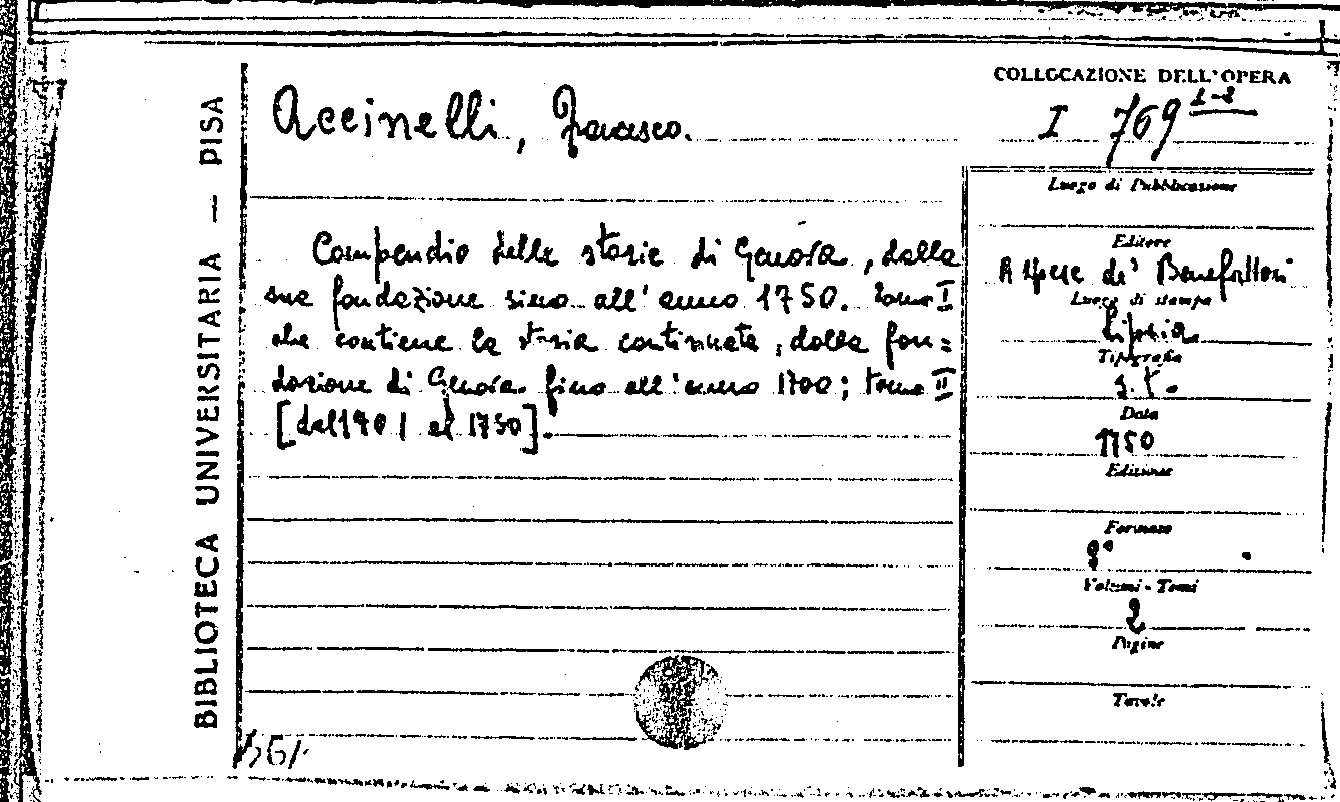 BIBLIOTECA UNIVERSITARIA — PISA
Accinelli, Francesco.
Compendio delle storie di Genova, dalla
sua fondazione sino all' anno 1750. Tomo I
che contiene la storia continuata, dalla fon=
dazione di Genova fino all' anno 1700; tomo II
[dal 1701 al 1750].
COLLOCAZIONE DELL'OPERA
I 769 1-2
Luogo di Pubblicazione
Editore
A spese de' Benefattori
Luogo di stampa
Lipsia
Tipografia
Data
1750
Edizione
Formato
8°
Volumi - Tomi
2
Pagine
Tavole